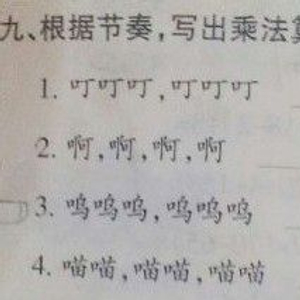 九、根据节奏,写出乘法算
1. 叮叮叮,叮叮叮
2. 啊,啊,啊,啊
3. 呜呜呜,呜呜呜
4. 喵喵,喵喵,喵喵